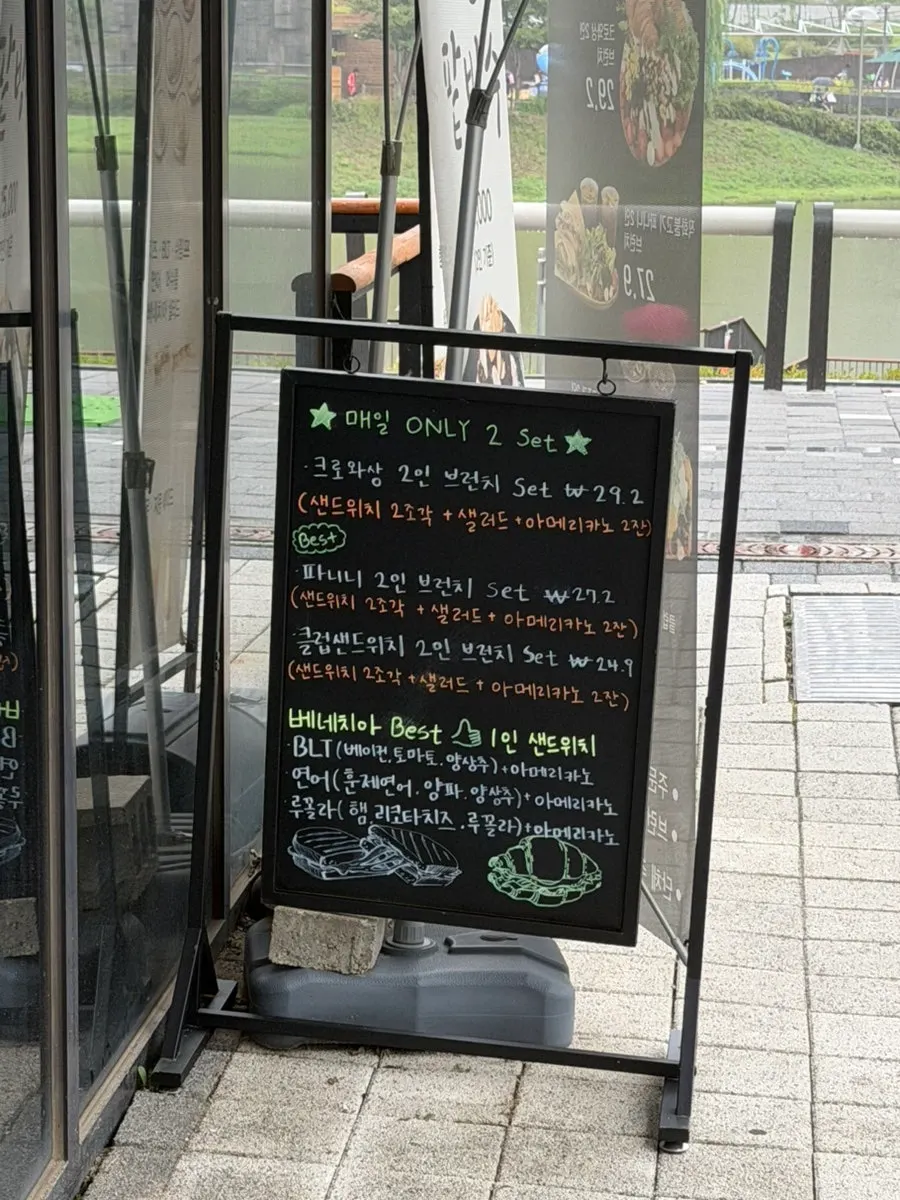 크로와상 2인
브런치
29.2
직화불고기 파니니 2인
브런치
27.9
매일 ONLY 2 Set
· 크로와상 2인 브런치 Set ₩ 29.2
(샌드위치 2조각 + 샐러드 + 아메리카노 2잔)
Best
· 파니니 2인 브런치 Set ₩ 27.2
(샌드위치 2조각 + 샐러드 + 아메리카노 2잔)
· 클럽샌드위치 2인 브런치 Set ₩ 24.9
(샌드위치 2조각 + 샐러드 + 아메리카노 2잔)
베네치아 Best 1인 샌드위치
· BLT (베이컨.토마토.양상추)+아메리카노
· 연어(훈제연어.양파.양상추)+아메리카노
· 루꼴라(햄.리코타치즈.루꼴라)+아메리카노
· 주문
· 브런
· 단체